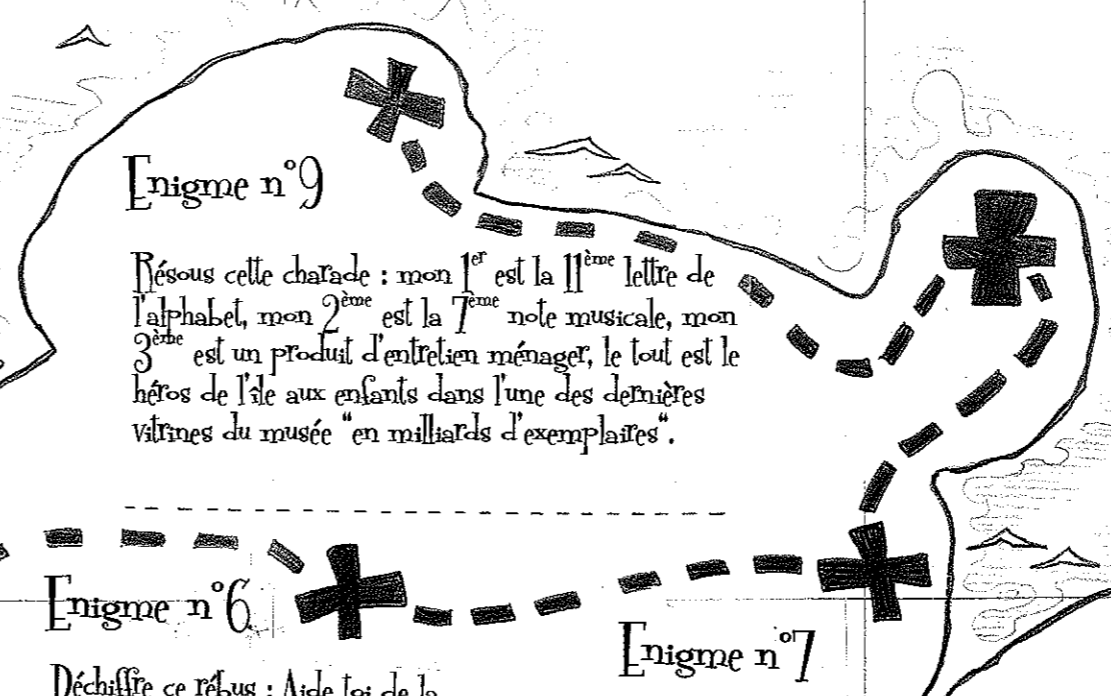 Enigme n°9
Résous cette charade : mon 1er est la 11ème lettre de
l'alphabet, mon 2ème est la 7ème note musicale, mon
3ème est un produit d'entretien ménager, le tout est le
héros de l'île aux enfants dans l'une des dernières
vitrines du musée "en milliards d'exemplaires".
Enigme n°6
Enigme n°7
Déchiffre ce rébus : Aide toi de la